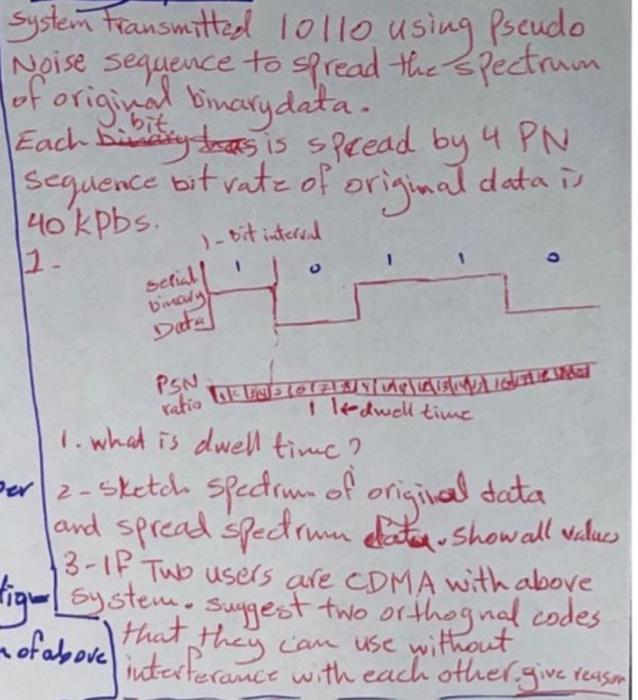 System transmitted 10110 using Pseudo
Noise sequence to spread the spectrum
of original binary data.
bit
Each binary has is spread by 4 PN
sequence bit rate of original data is
40 kpbs.
1-bit interval
1-
serial 1 0 1 1 0
binary
Data
PSN
ratio
1 dwell time
1. what is dwell time?
per
2- sketch spectrum of original data
and spread spectrum data. show all values
3-IF Two users are CDMA with above
system. suggest two orthognal codes
that they can use without
of above
interferance with each other. give reason